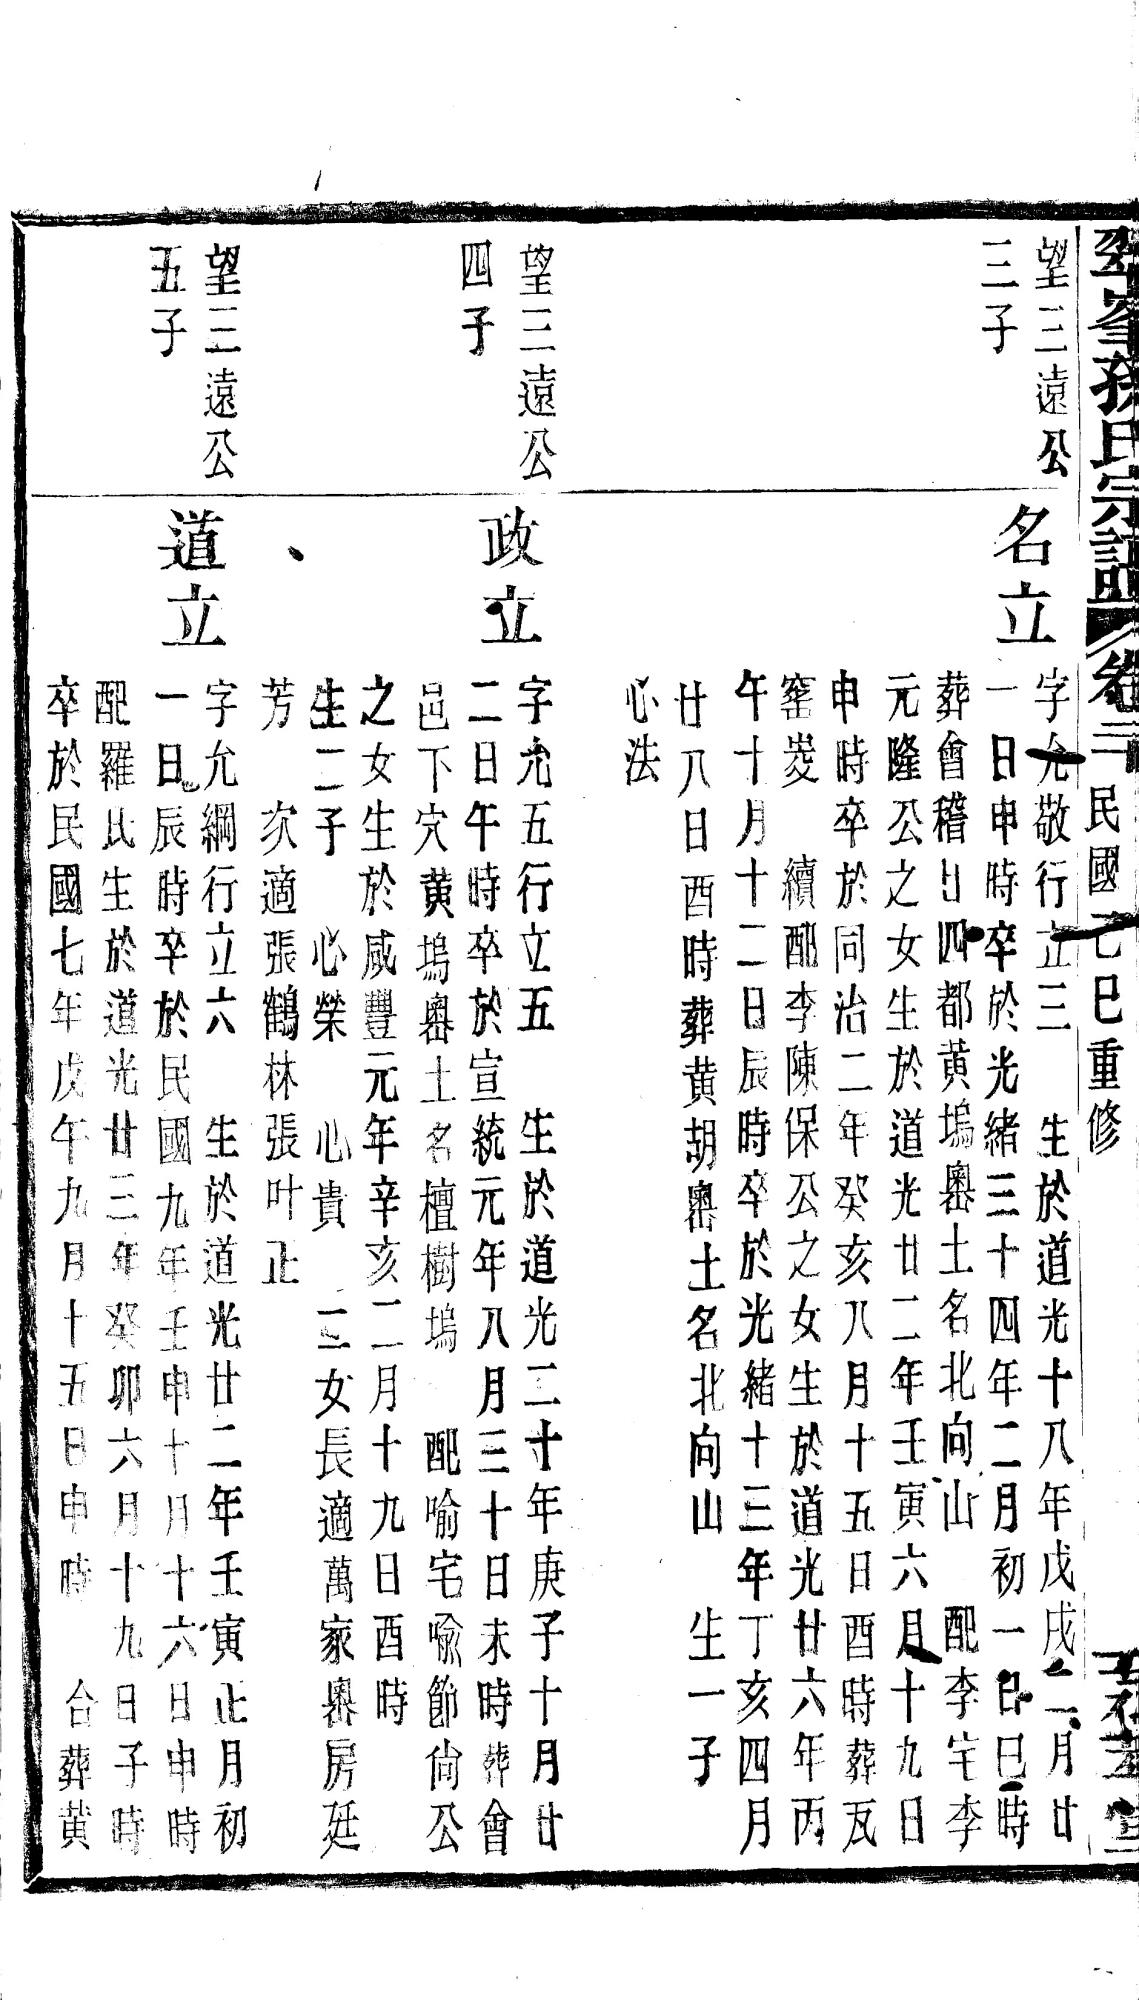 翠峯孫氏宗譜 卷二 民國己巳重修
望三遠公
三子
名立
字允敬行立三 生於道光十八年戊戌二月廿
一日申時卒於光緒三十四年二月初一日巳時
葬會稽廿四都黄塢嶴土名北向山 配李宅李
元隆公之女生於道光廿二年壬寅六月十九日
申時卒於同治二年癸亥八月十五日酉時葬瓦
窰㚇 續配李陳保公之女生於道光廿六年丙
午十月十二日辰時卒於光緒十三年丁亥四月
廿八日酉時葬黄胡嶴土名北向山 生一子
心法
望三遠公
四子
政立
字允五行立五 生於道光二十年庚子十月廿
二日午時卒於宣統元年八月三十日未時葬會
邑下穴黄塢嶴土名檀樹塢 配喻宅喻節尙公
之女生於咸豐元年辛亥二月十九日酉時
生二子 心榮 心貴 二女長適萬家嶴房廷
芳 次適張鶴林張叶正
望三遠公
五子
道立
字允綱行立六 生於道光廿二年壬寅正月初
一日辰時卒於民國九年壬申十月十六日申時
配羅氏生於道光廿三年癸卯六月十九日子時
卒於民國七年戊午九月十五日申時 合葬黄